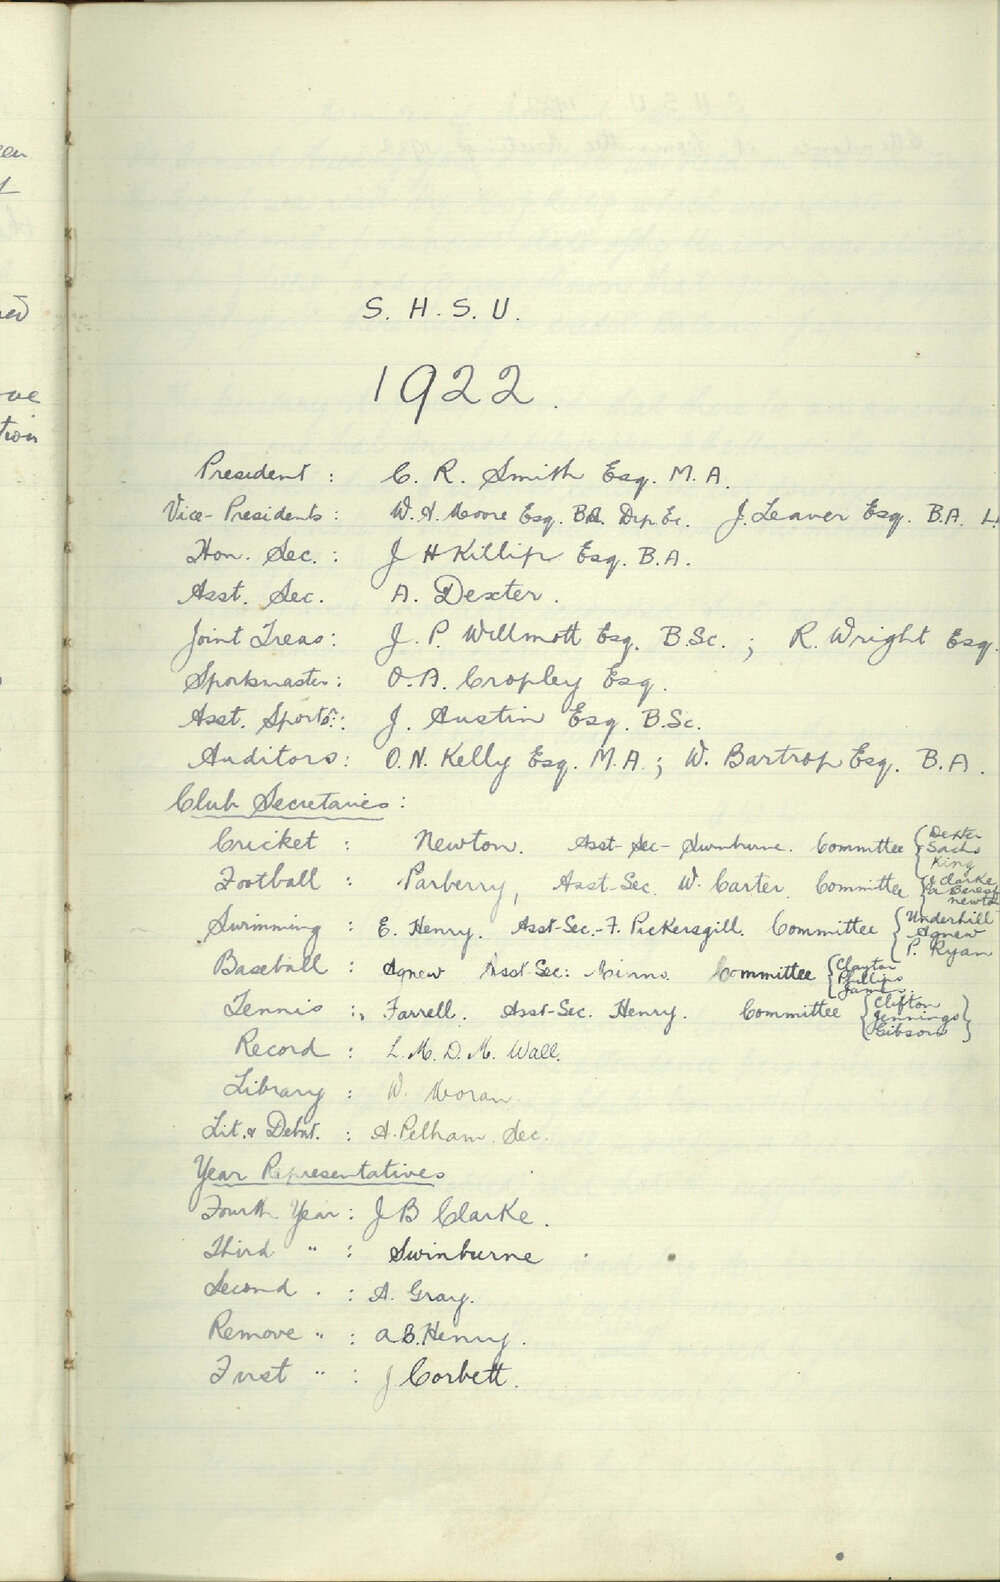 S. H. S. U.
1922.
President : C. R. Smith Esq. M.A.
Vice-Presidents : W. A. Moore Esq. B.A. Dip. Ec. J. Leaver Esq. B.A. L
Hon. Sec. : J H Killip Esq. B.A.
Asst. Sec. A. Dexter.
Joint Treas : J. P. Willmott Esq. B.Sc. ; R. Wright Esq.
Sportsmaster : O. A. Cropley Esq.
Asst. Sports : J. Austin Esq. B.Sc.
Auditors : O. N. Kelly Esq. M.A. ; W. Bartrop Esq. B.A.
Club Secretaries :
Cricket : Newton. Asst-Sec- Swinburne. Committee { Dexter
Sachs
King
Football : Parberry, Asst-Sec. W. Carter Committee { Clarke
Newto
Swimming : E. Henry. Asst-Sec.- F. Pickersgill. Committee { Underhill
Agnew
P. Ryan
Baseball : Agnew Asst Sec: Committee { Clayton
Phillips
James
Tennis : Farrell. Asst-Sec. Henry. Committee { Clifton
Jennings
Gibson }
Record : L. M. D. M. Wall.
Library : W. Moran.
Lit. & Debat. : A. Pelham Sec.
Year Representatives
Fourth Year : J B Clarke.
Third " : Swinburne
Second . : A. Gray.
Remove " : A B. Henry.
First " : J Corbett.